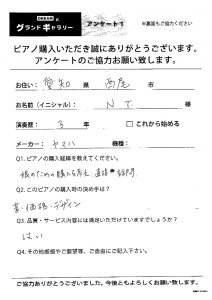 グランドギャラリー アンケート1 ※裏面もご協力ください
ピアノ購入いただき誠にありがとうございます。
アンケートのご協力お願い致します。
お住い: 愛知 県 西尾
お名前(イニシャル): N T. 様
演奏歴: 3 年 □ これから始める
メーカー: ヤマハ 機種:
Q1.ピアノの購入経緯を教えてください。
娘のための購入を考え
Q2.このピアノの購入時の決め手は?
音・価格・デザイン
Q3.品質・サービス内容には満足いただけていますでしょうか?
はい
Q4.その他感想やご要望等、ご自由にご記入下さい。
ご協力ありがとうございました。今後ともよろしくお願い致します。